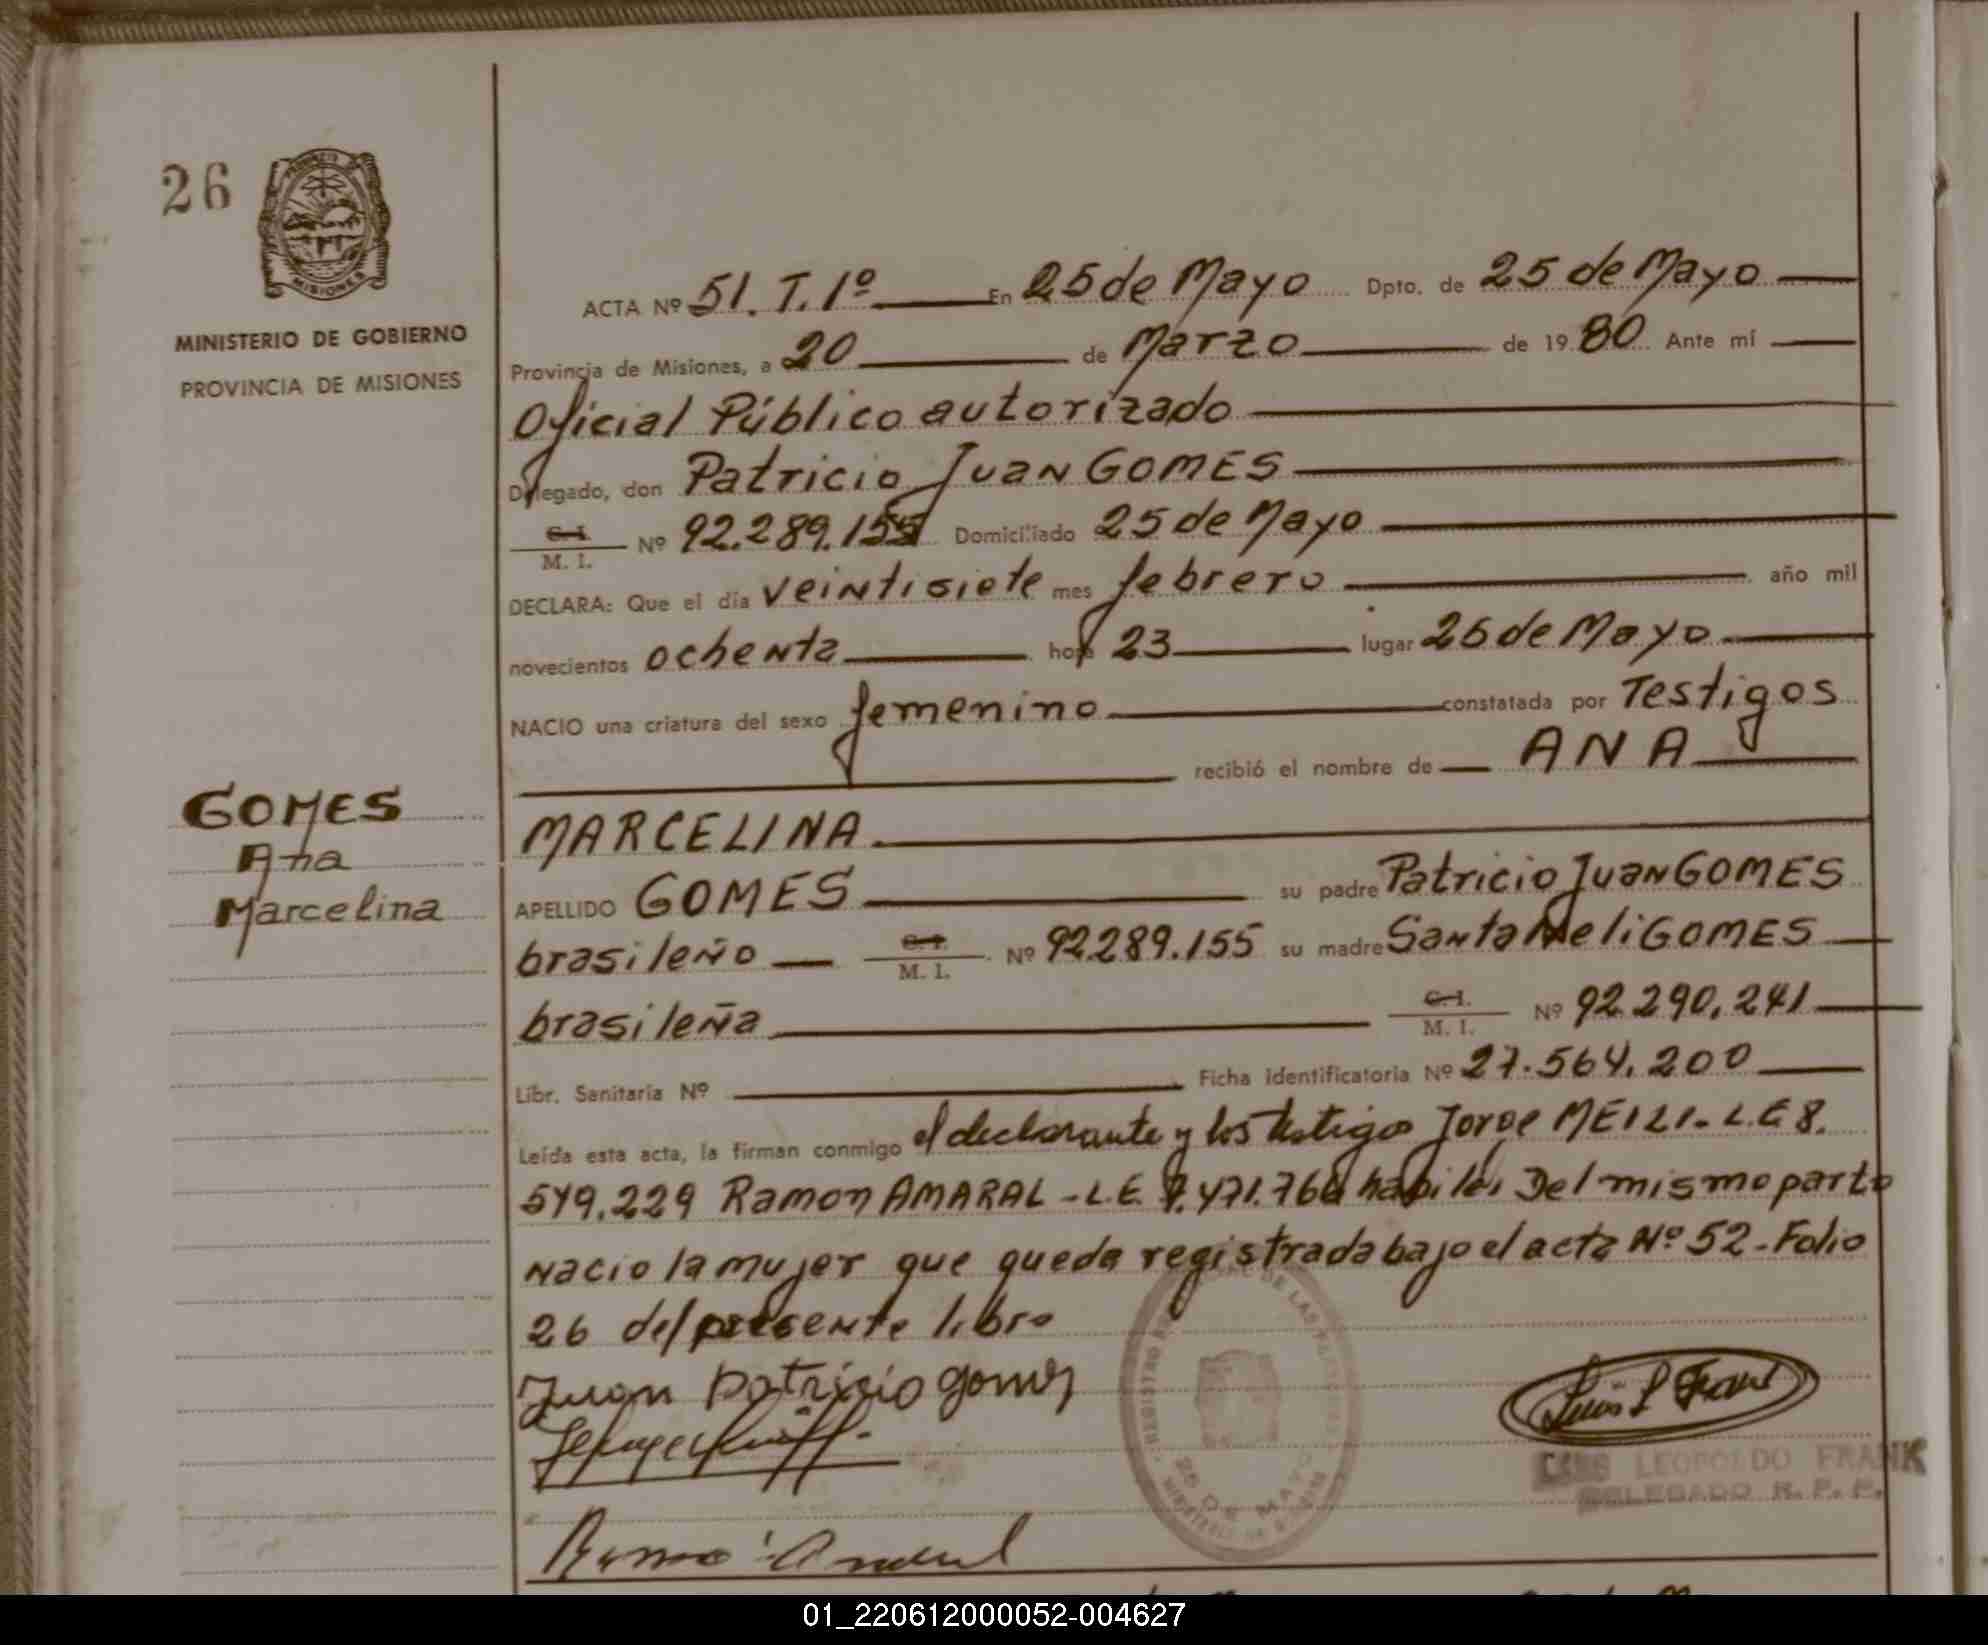 26
PROVINCIA DE
MISIONES
MINISTERIO DE GOBIERNO
PROVINCIA DE MISIONES
GOMES
Ana
Marcelina
ACTA Nº 51. T. 1º En 25 de Mayo Dpto. de 25 de Mayo
Provincia de Misiones, a 20 de Marzo de 1980 Ante mí
Oficial Público autorizado
Delegado, don Patricio Juan GOMES
C. I. / M. I. Nº 92.289.155 Domiciliado 25 de Mayo
DECLARA: Que el día veintisiete mes febrero año mil
novecientos ochenta hora 23 lugar 25 de Mayo
NACIO una criatura del sexo femenino constatada por Testigos
recibió el nombre de ANA
MARCELINA
APELLIDO GOMES su padre Patricio Juan GOMES
brasileño C. I. / M. I. Nº 92289.155 su madre Santa Neli GOMES
brasileña C. I. / M. I. Nº 92.290.241
Libr. Sanitaria Nº Ficha identificatoria Nº 27.564.200
Leída esta acta, la firman conmigo el declarante y los testigos Jorge MEILI - L.E 8.
549.229 Ramon AMARAL - L.E. 7.471.766 habiles Del mismo parto
nacio la mujer que queda registrada bajo el acta Nº 52 - Folio
26 del presente libro
Juan Patricio Gomes
Luis L Frank
LUIS LEOPOLDO FRANK
DELEGADO R. P. P.
REGISTRO DE LAS 25 DE MAYO
Ramon Amaral
01_220612000052-004627